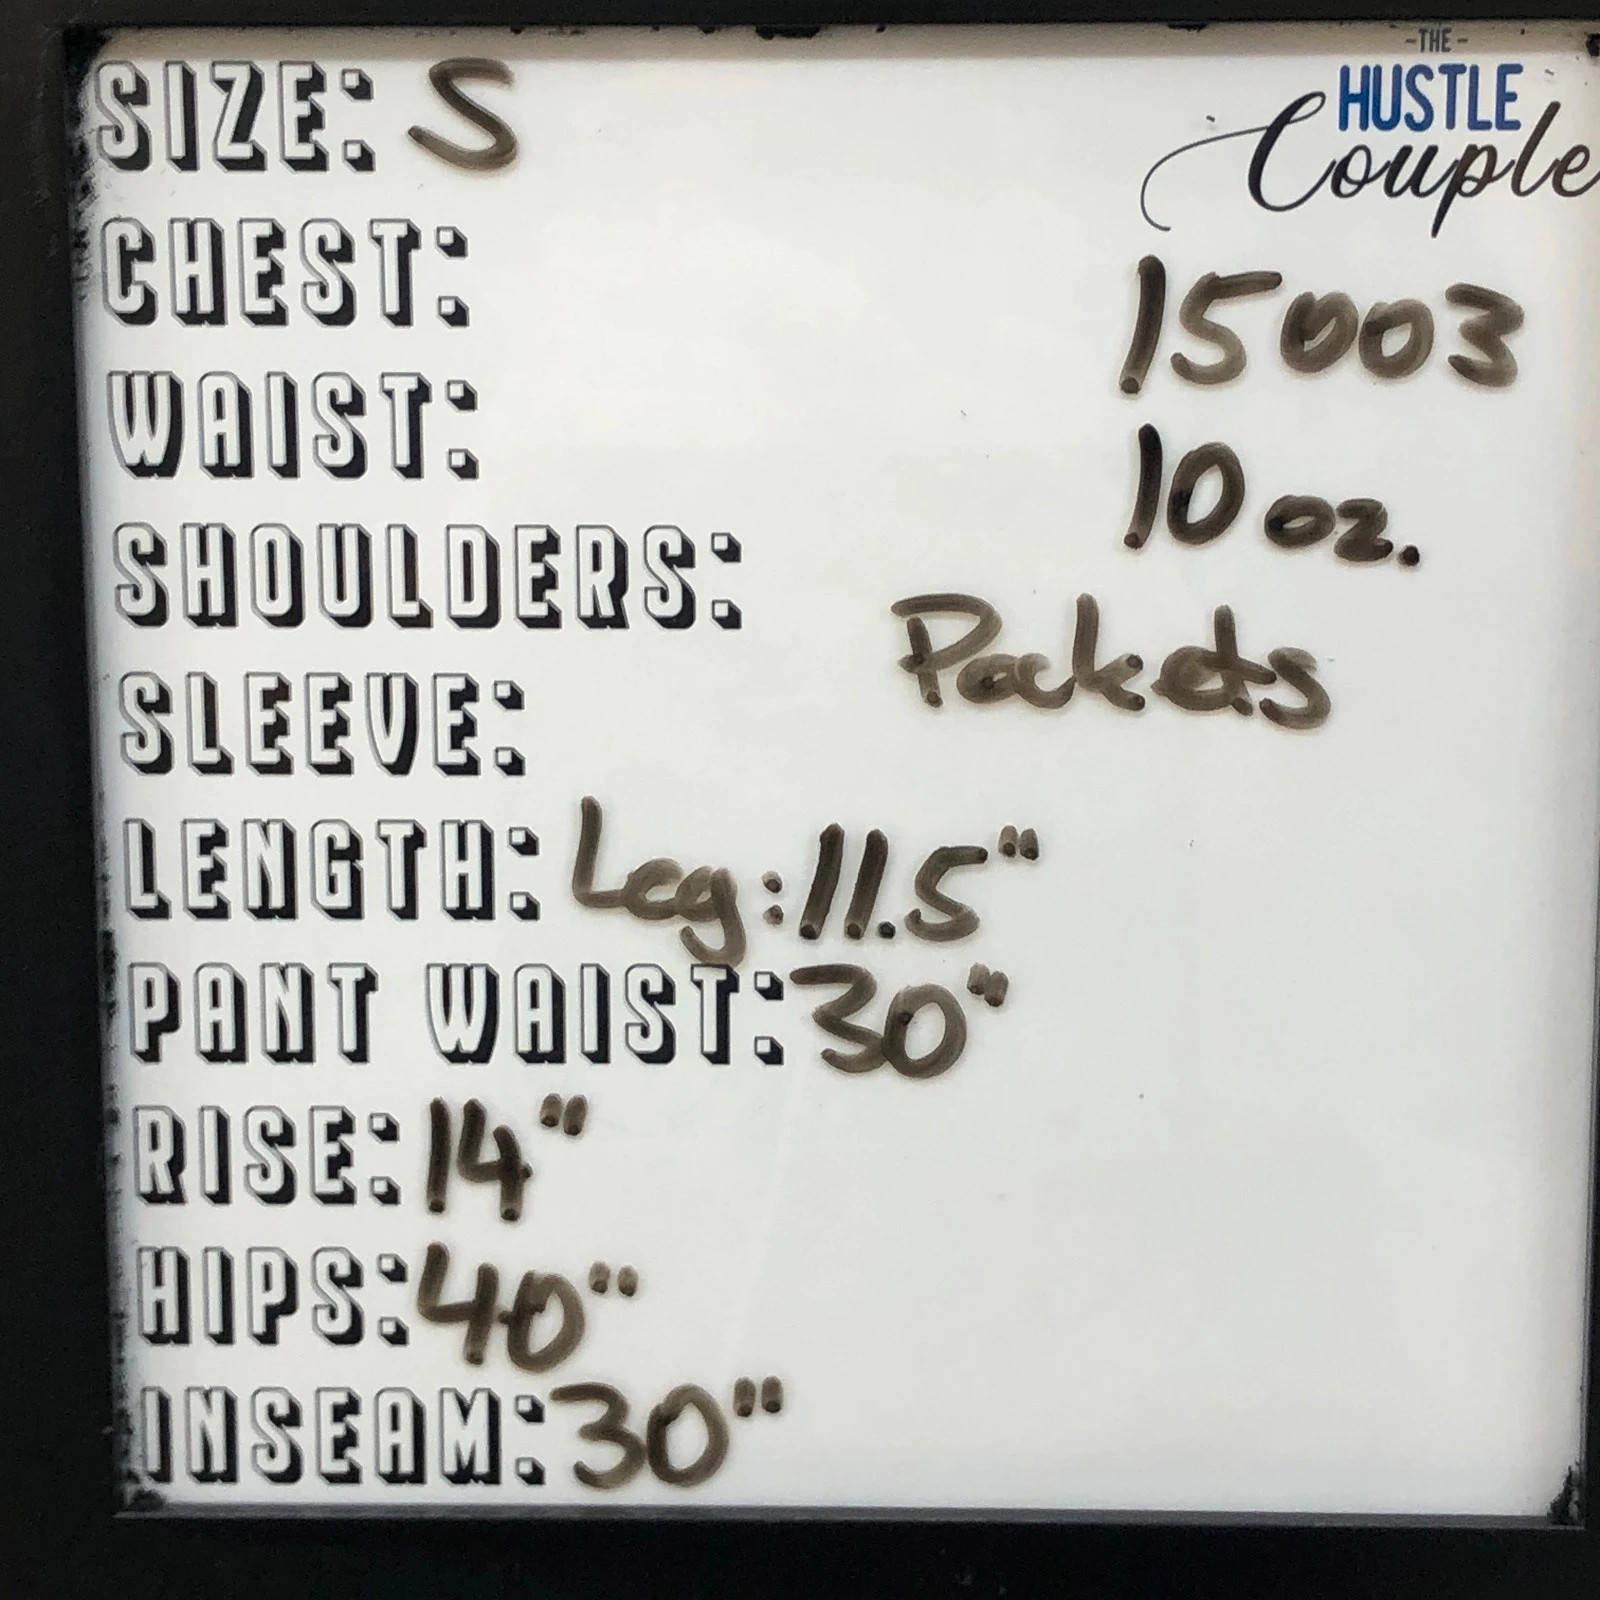 SIZE: S
-THE-
HUSTLE
Couple
CHEST:
15003
WAIST:
10 oz.
SHOULDERS:
Pockets
SLEEVE:
LENGTH: Leg: 11.5"
PANT WAIST: 30"
RISE: 14"
HIPS: 40"
INSEAM: 30"